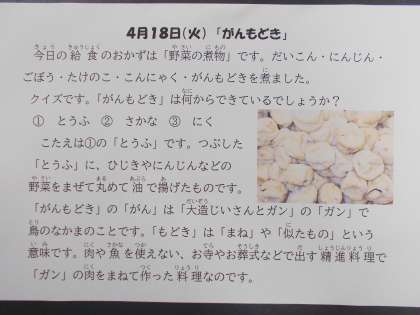 4月18日(火)「がんもどき」
今日の給食のおかずは「野菜の煮物」です。だいこん・にんじん・
ごぼう・たけのこ・こんにゃく・がんもどきを煮ました。
クイズです。「がんもどき」は何からできているでしょうか?
① とうふ ② さかな ③ にく
こたえは①の「とうふ」です。つぶした
「とうふ」に、ひじきやにんじんなどの
野菜をまぜて丸めて油で揚げたものです。
「がんもどき」の「がん」は「大造じいさんとガン」の「ガン」で
鳥のなかまのことです。「もどき」は「まね」や「似たもの」という
意味です。肉や魚を使えない、お寺やお葬式などで出す精進料理で
「ガン」の肉をまねて作った料理なのです。